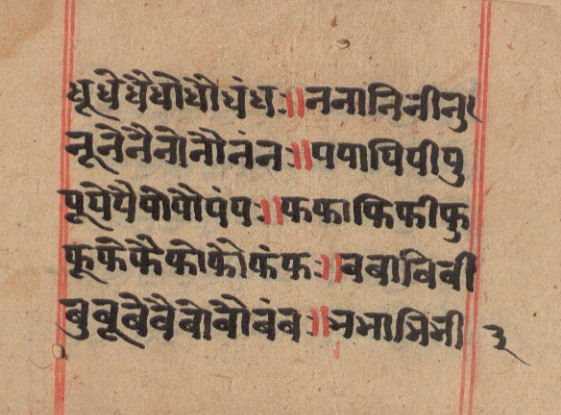 धूधेधैधोधौधंधः॥ननानिनीनु
नूनेनैनोनौनंनः॥पपापिपीपु
पूपेपैपोपौपंपः॥फफाफिफीफु
फूफेफैफोफौफंफः॥बबाबिबी
बुबूबेबैबोबौबंबः॥भभाभिभी ३